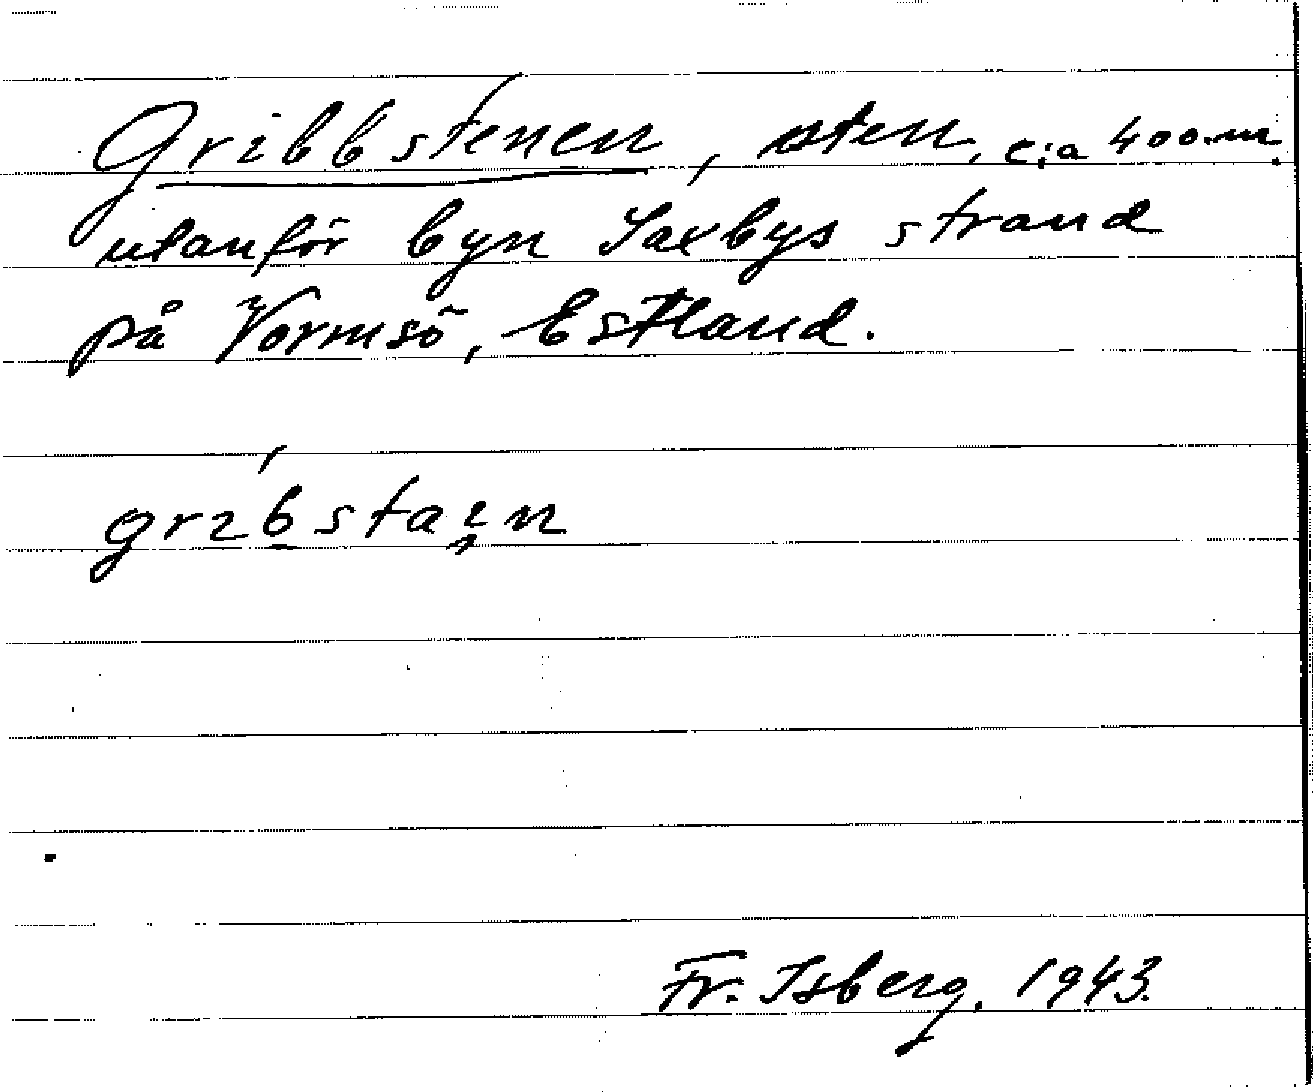 Gribbstenen, sten, c:a 400 m.
utanför byn Saxbys strand
på Vormsö, Estland.
gribstain
Fr. Isberg, 1943.